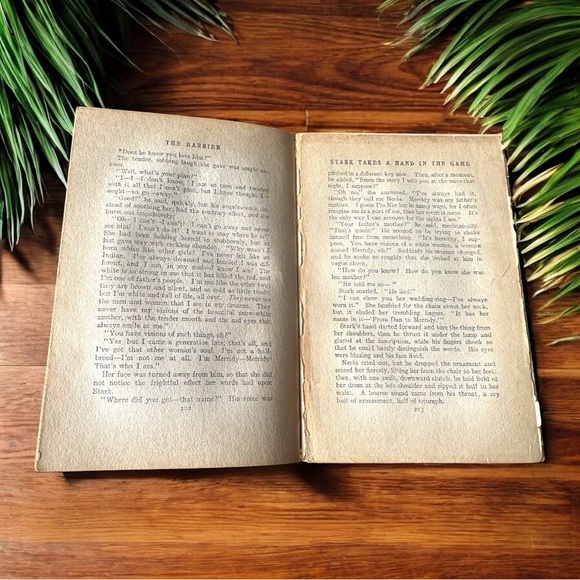 THE BARRIER
"Does he know you love him?"
The tender, sobbing laugh she gave was ample an-
swer.
"Well, what's your plan?"
"I—I—I don't know. I am so torn and twisted
with it all that I can't plan, but I have thought I
ought—to go—away."
"Good!" he said, quickly, but his acquiescence, in-
stead of soothing her, had the contrary effect, and she
burst out impulsively:
"Oh—I can't—I can't! I can't go away and never
see him! I can't do it! I want to stay where he is!"
She had been holding herself in stubbornly, but at
last gave way with reckless abandon. "Why wasn't I
born white like other girls? I've never felt like an
Indian. I've always dreamed and fancied I was dif-
ferent, and I am, in my soul—I know I am! The
white is so strong in me that it has killed the red, and
I'm one of father's people. I'm not like the other two;
they are brown and silent, and as cold as little toads;
but I'm white and full of life, all over. They never see
the men and women that I see in my dreams. They
never have my visions of the beautiful snow-white
mother, with the tender mouth and the sad eyes that
always smile at me."
"You have visions of such things, eh?"
"Yes, but I came a generation late, that's all, and
I've got that other woman's soul. I'm not a half-
breed—I'm not me at all. I'm Merridy—Merridy!
That's who I am."
Her face was turned away from him, so that she did
not notice the frightful effect her words had upon
Stark.
"Where did you get—that name?" His voice was
202
STARK TAKES A HAND IN THE GAME
pitched in a different key now. Then, after a moment,
he added, "From the story I told you at the mine that
night, I suppose?"
"Oh no," she answered. "I've always had it,
though they call me Necia. Merridy was my father's
mother. I guess I'm like her in many ways, for I often
imagine she is a part of me, that her spirit is mine. It's
the only way I account for the sights I see."
"Your father's mother?" he said, mechanically.
"That's queer." He seemed to be trying to shake
himself free from something. "It's heredity, I sup-
pose. You have visions of a white woman, a woman
named Merridy, eh?" Suddenly his manner changed,
and he spoke so roughly that she looked at him in
vague alarm.
"How do you know? How do you know she was
his mother?"
"He told me so—"
Stark snarled. "He lied!"
"I can show you her wedding-ring—I've always
worn it." She fumbled for the chain about her neck,
but it eluded her trembling fingers. "It has her
name in it—'From Dan to Merridy.'"
Stark's hand darted forward and tore the thing from
her shoulders, then he thrust it under the lamp and
glared at the inscription, while his fingers shook so
that he could barely distinguish the words. His eyes
were blazing and his face livid.
Necia cried out, but he dropped the ornament and
seized her fiercely, lifting her from the chair to her feet;
then, with one swift, downward clutch, he laid hold of
her dress at the left shoulder and ripped it half to her
waist. A hoarse sound came from his throat, a cry
half of amazement, half of triumph.
203